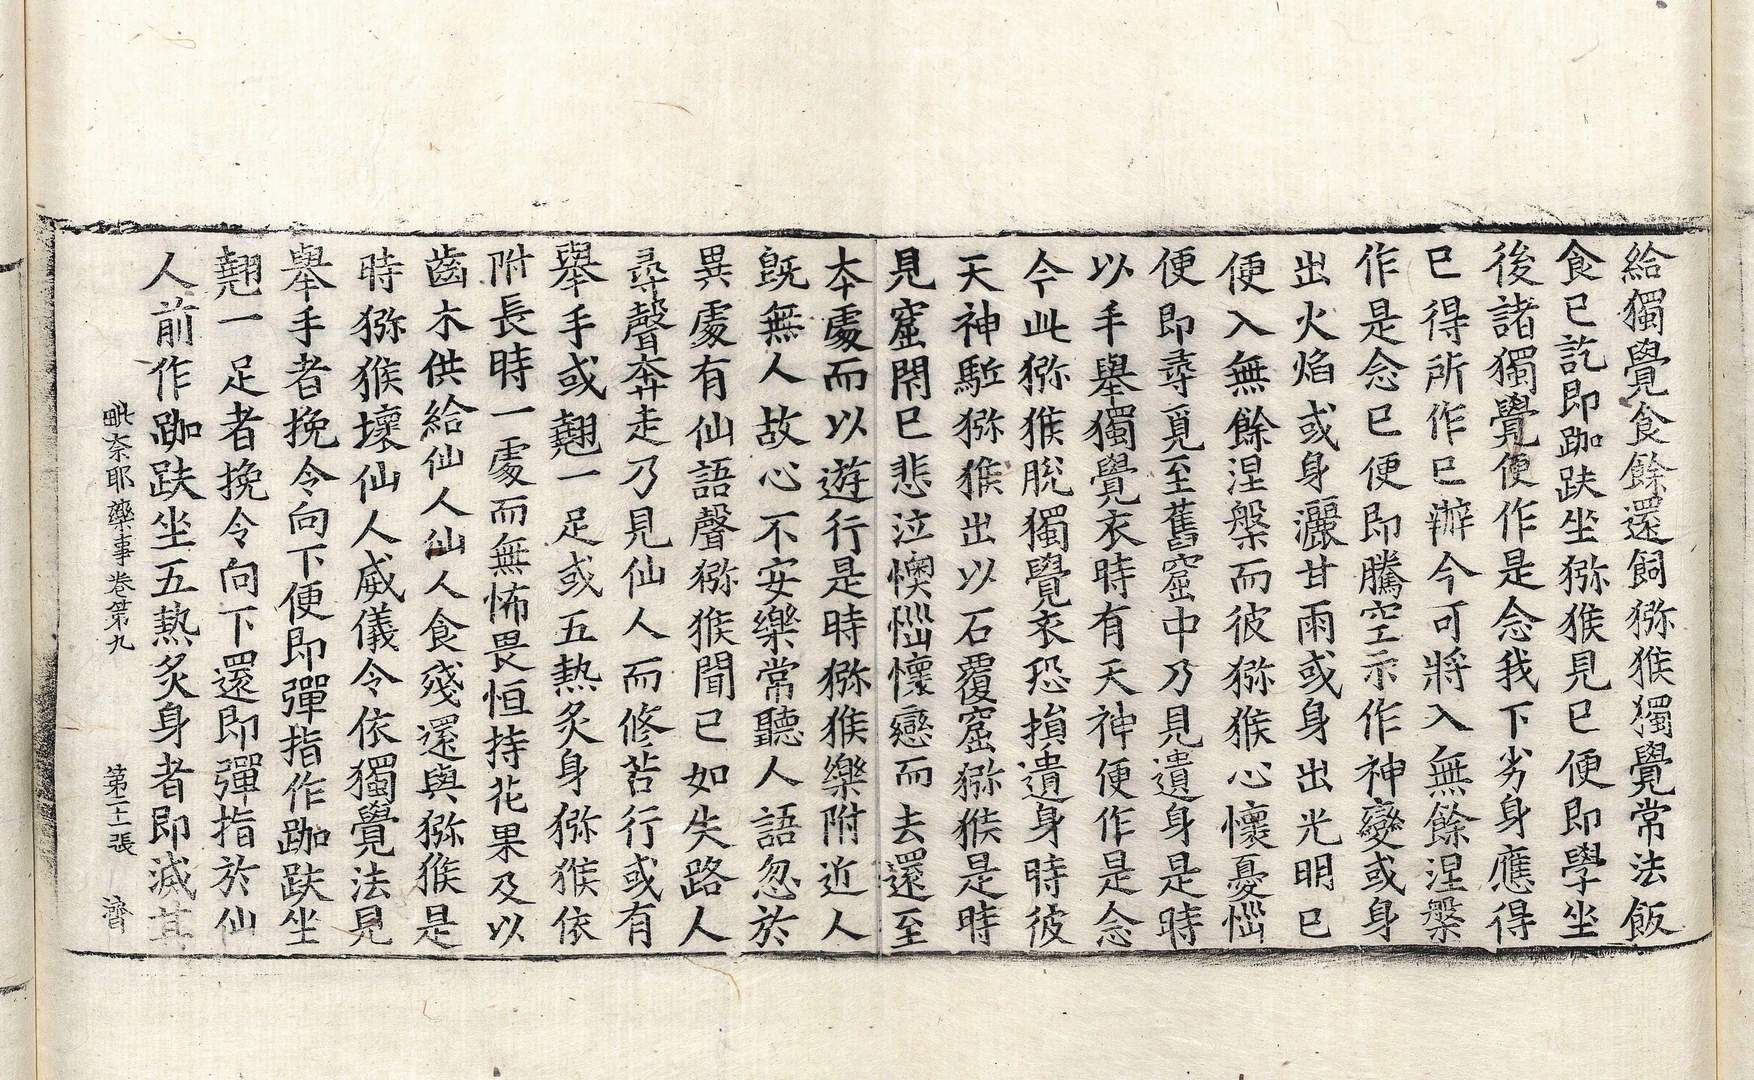 給獨覺食餘還飼猕猴獨覺常法飯
食已訖即跏趺坐猕猴見已便即學坐
後諸獨覺便作是念我下劣身應得
已得所作已辦今可將入無餘涅槃
作是念已便即騰空示作神變或身
出火焰或身灑甘雨或身出光明已
便入無餘涅槃而彼猕猴心懷憂惱
便即尋覓至舊窟中乃見遺身是時
以手舉獨覺衣時有天神便作是念
今此猕猴脫獨覺衣恐損遺身時彼
天神駈猕猴出以石覆窟猕猴是時
見窟閇已悲泣懊惱懷戀而去還至
本處而以遊行是時猕猴樂附近人
旣無人故心不安樂常聽人語忽於
異處有仙語聲猕猴聞已如失路人
尋聲奔走乃見仙人而修苦行或有
舉手或翹一足或五熱炙身猕猴依
附長時一處而無怖畏恒持花果及以
齒木供給仙人仙人食殘還與猕猴是
時猕猴壞仙人威儀令依獨覺法見
舉手者挽令向下便即彈指作跏趺坐
翹一足者挽令向下還即彈指於仙
人前作跏趺坐五熱炙身者即滅其
毗柰耶藥事卷第九 第二十張 濟